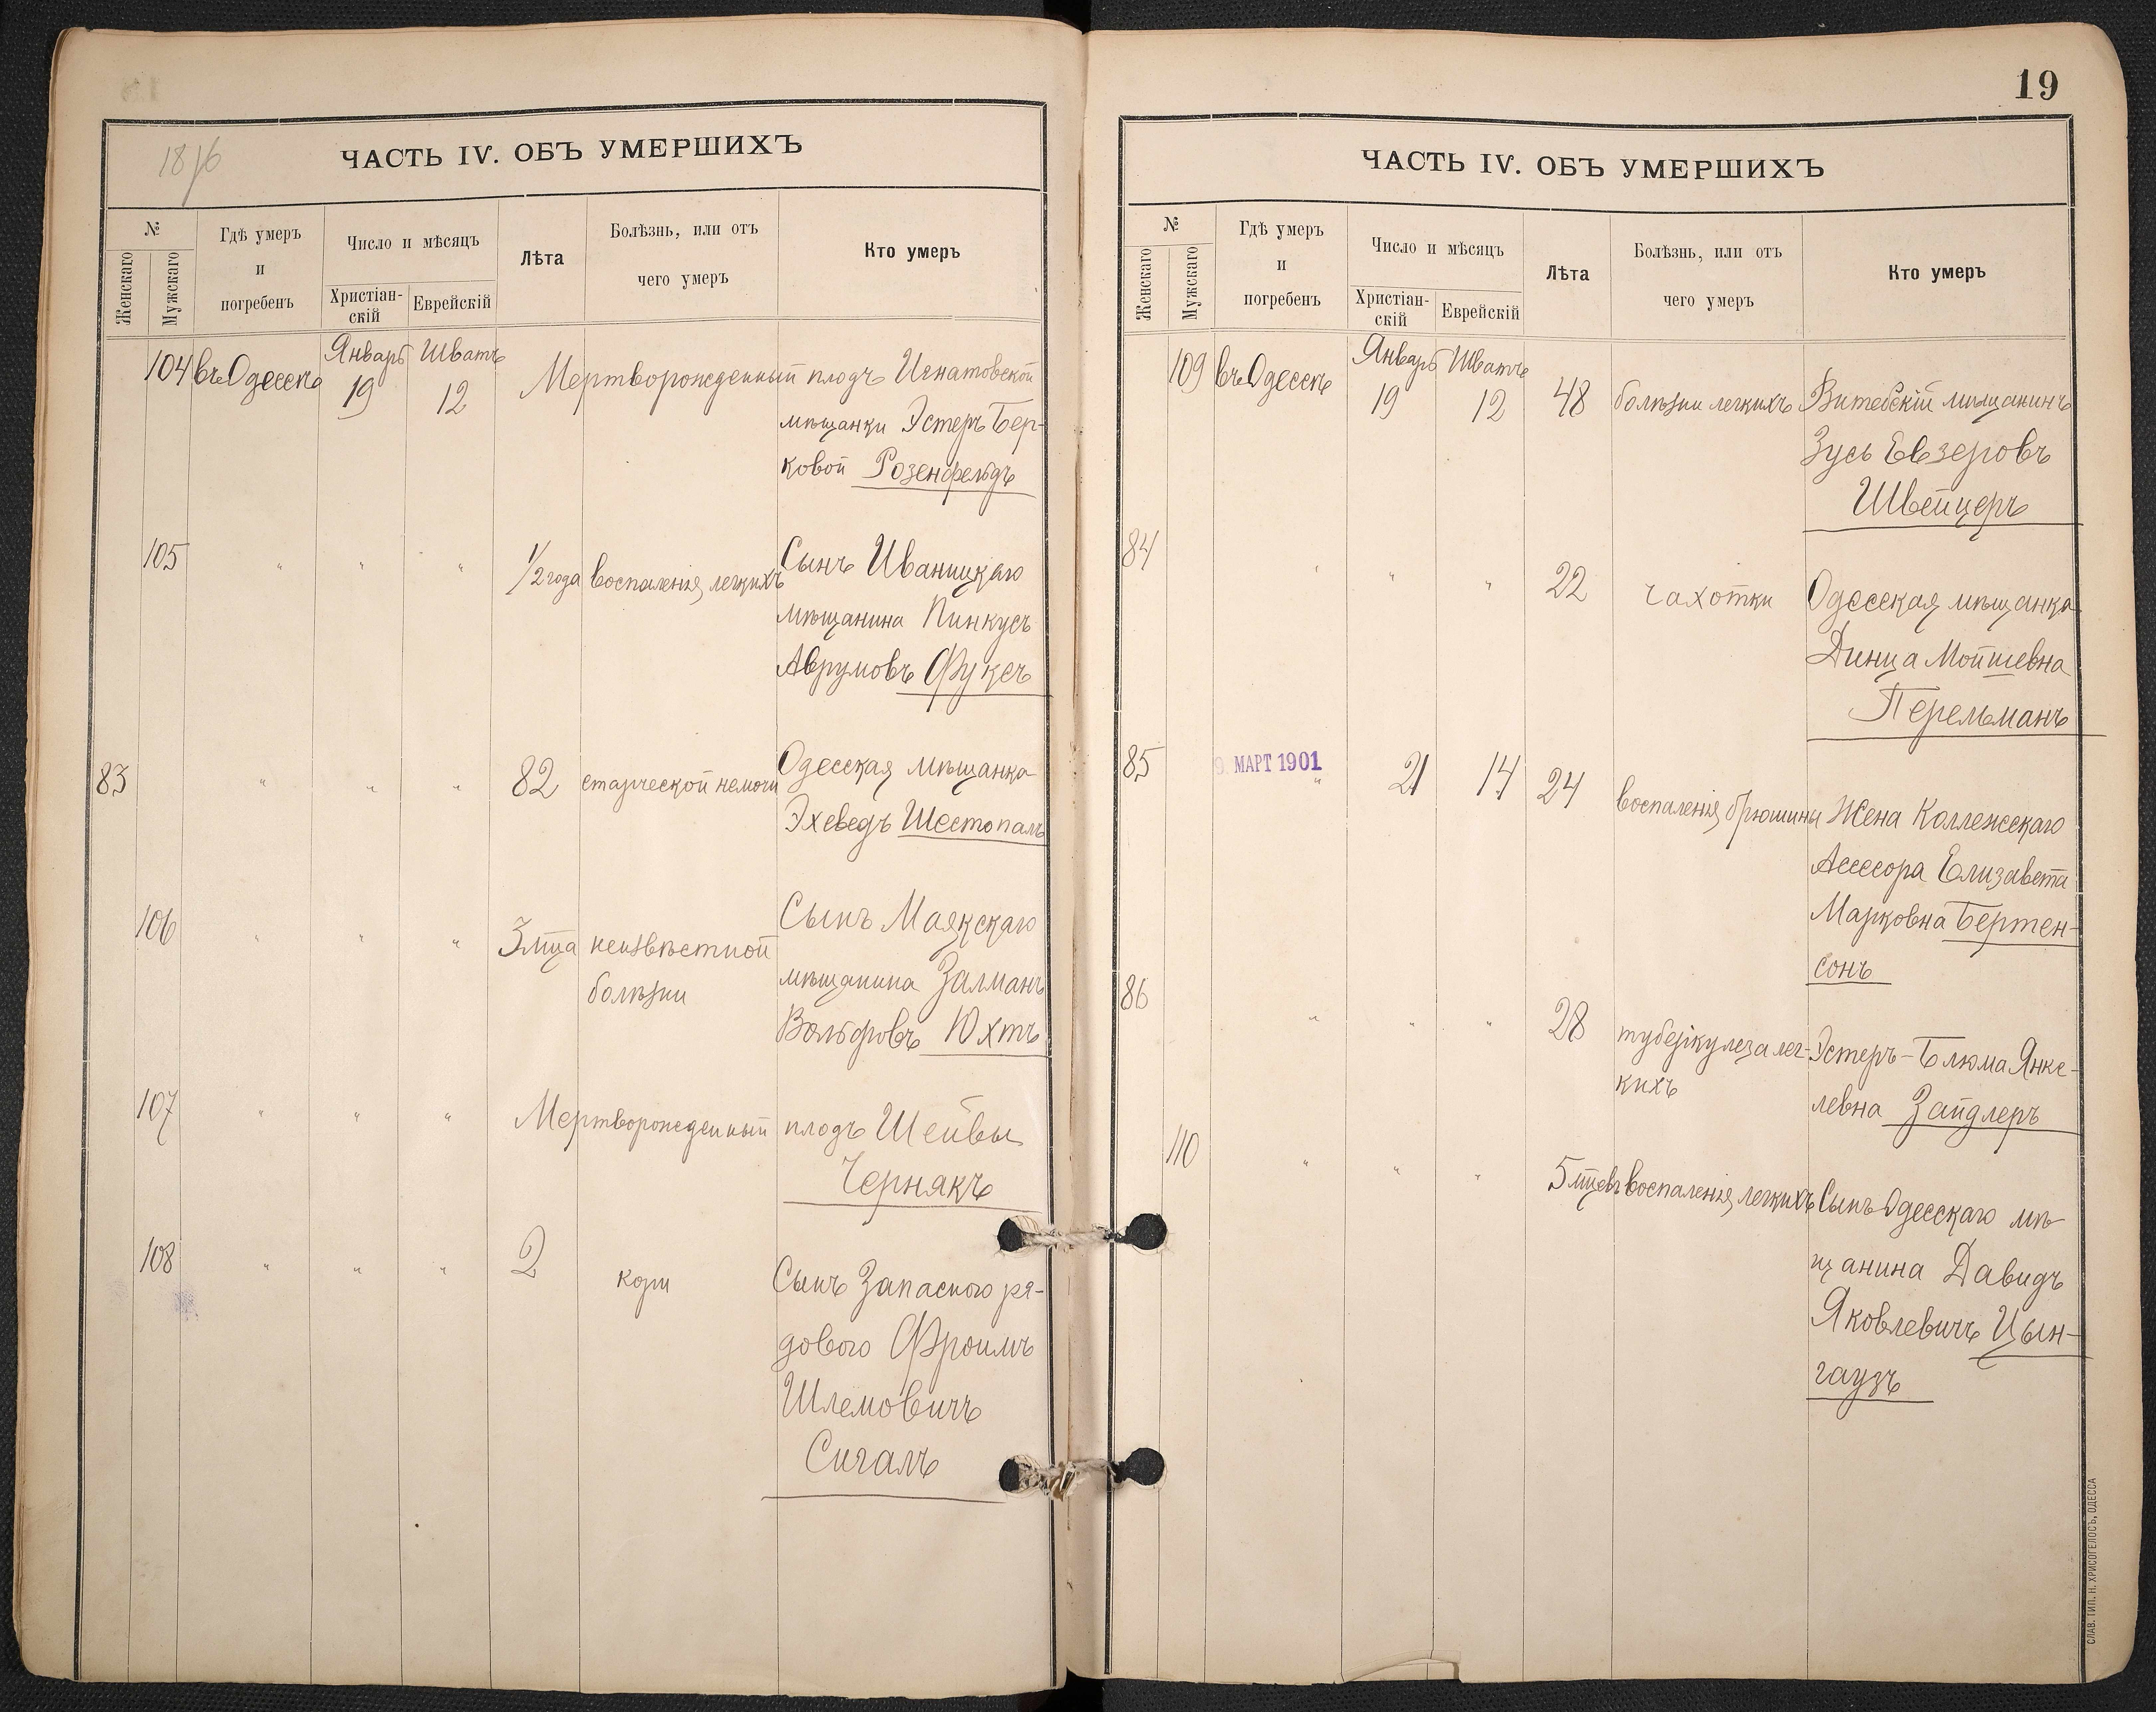 1896
ЧАСТЬ IV. ОБЪ УМЕРШИХЪ
№
Женскаго
Мужскаго
Гдѣ умеръ
и
погребенъ
Число и мѣсяцъ
Христіан-
скій
Еврейскій
Лѣта
Болѣзнь, или отъ
чего умеръ
Кто умеръ
104 въ Одессѣ Январь 19 Шватъ 12 Мертворожденный плодъ Игнатовской
мѣщанки Эстеръ Бер-
ковой Розенфельдъ
105 " " " 1/2 года воспаленія легкихъ Сынъ Иваницкаго
мѣщанина Пинкусъ
Аврумовъ Фуксъ
83 " " " 82 старческой немочи Одесская мѣщанка
Эхеведъ Шестопалъ
106 " " " 3 мѣца неизвѣстной Сынъ Маякскаго
болѣзни мѣщанина Залманъ
Вольфовъ Юхтъ
107 " " " Мертворожденный плодъ Шейвы
Чернякъ
108 " " " 2 кори Сынъ Запасного ря-
дового Фроимъ
Шлемовичъ
Сигалъ
19
ЧАСТЬ IV. ОБЪ УМЕРШИХЪ
№
Женскаго
Мужскаго
Гдѣ умеръ
и
погребенъ
Число и мѣсяцъ
Христіан-
скій
Еврейскій
Лѣта
Болѣзнь, или отъ
чего умеръ
Кто умеръ
109 въ Одессѣ Январь 19 Шватъ 12 48 болѣзни легкихъ Витебскій мѣщанинъ
Зусь Евзеровъ
Швейцеръ
84 " " " 22 чахотки Одесская мѣщанка
Динца Мойшевна
Перельманъ
85 9. МАРТ 1901 " 21 14 24 воспаленія брюшины Жена Коллежскаго
Ассесора Елизавета
Марковна Бертен-
сонъ
86 " " " 28 туберкулеза лег- Эстеръ-Блюма Янке-
кихъ левна Зайдлеръ
110 " " " 5 мѣцевъ воспаленія легкихъ Сынъ Одесскаго мѣ-
щанина Давидъ
Яковлевичъ Цын-
гаузъ
СЛАВ. ТИП. Н. ХРИСОГЕЛОСЪ, ОДЕССА